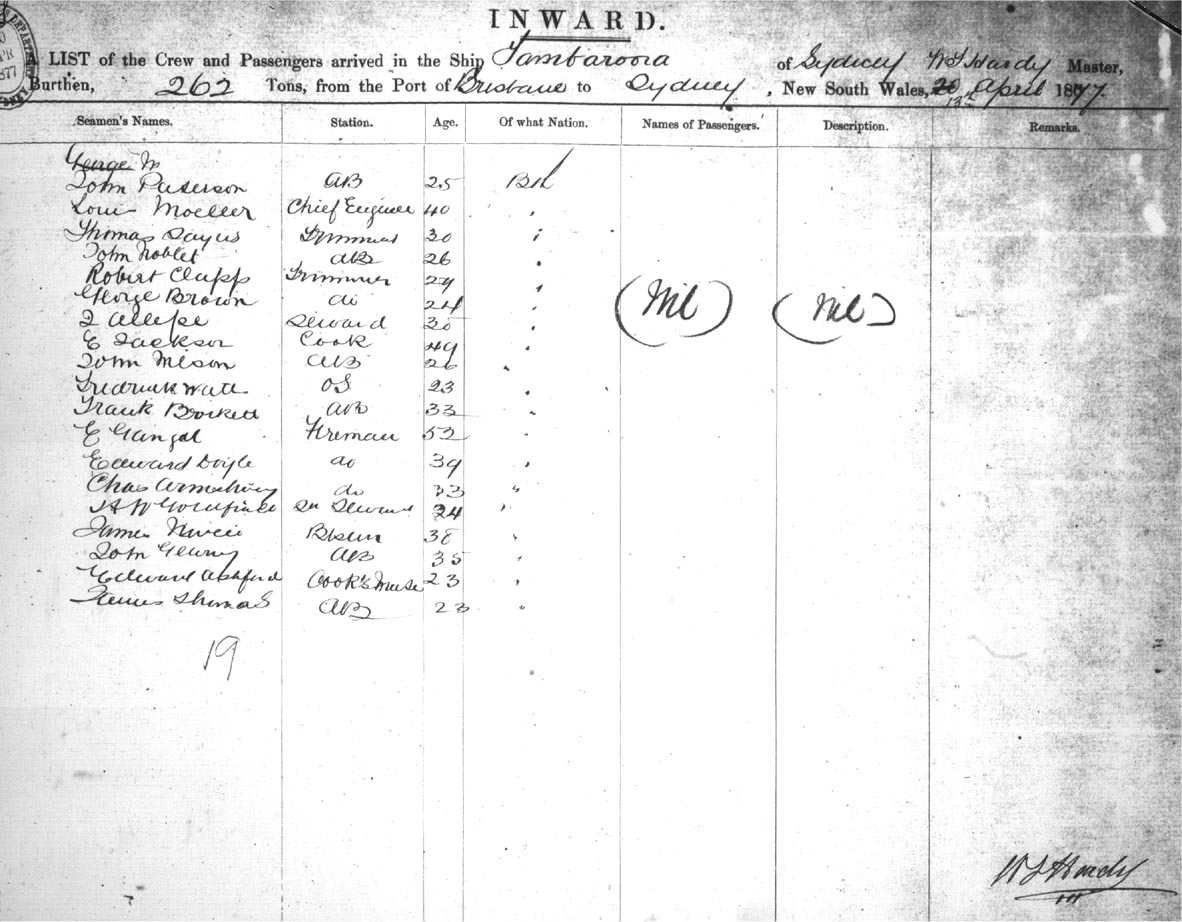 INWARD.
A LIST of the Crew and Passengers arrived in the Ship Tambaroora of Sydney W S Hardy Master,
Burthen, 262 Tons, from the Port of Brisbane to Sydney, New South Wales, 20 13th April 1877
Seamen's Names. Station. Age. Of what Nation. Names of Passengers. Description. Remarks.
George M
John Paterson AB 25 Bsh
Louis Moeller Chief Engineer 40 "
Thomas Sayus Trimmer 30 "
John Noblet AB 26 "
Robert Clapp Trimmer 29 "
George Brown do 24 " (Nil) (Nil)
Steward 30 "
E Jackson Cook 49 "
John Nelson AB 26 "
Fredrick Watt OS 23 "
Frank Brockett AB 33 "
E Gangal Fireman 52 "
Edward Doyle do 39 "
Chas Armstrong do 33 "
24 "
James Bosun 38 "
John AB 35 "
Edward Ashford Cook's Mate 23 "
James Thomas AB 23 "
19
W S Hardy